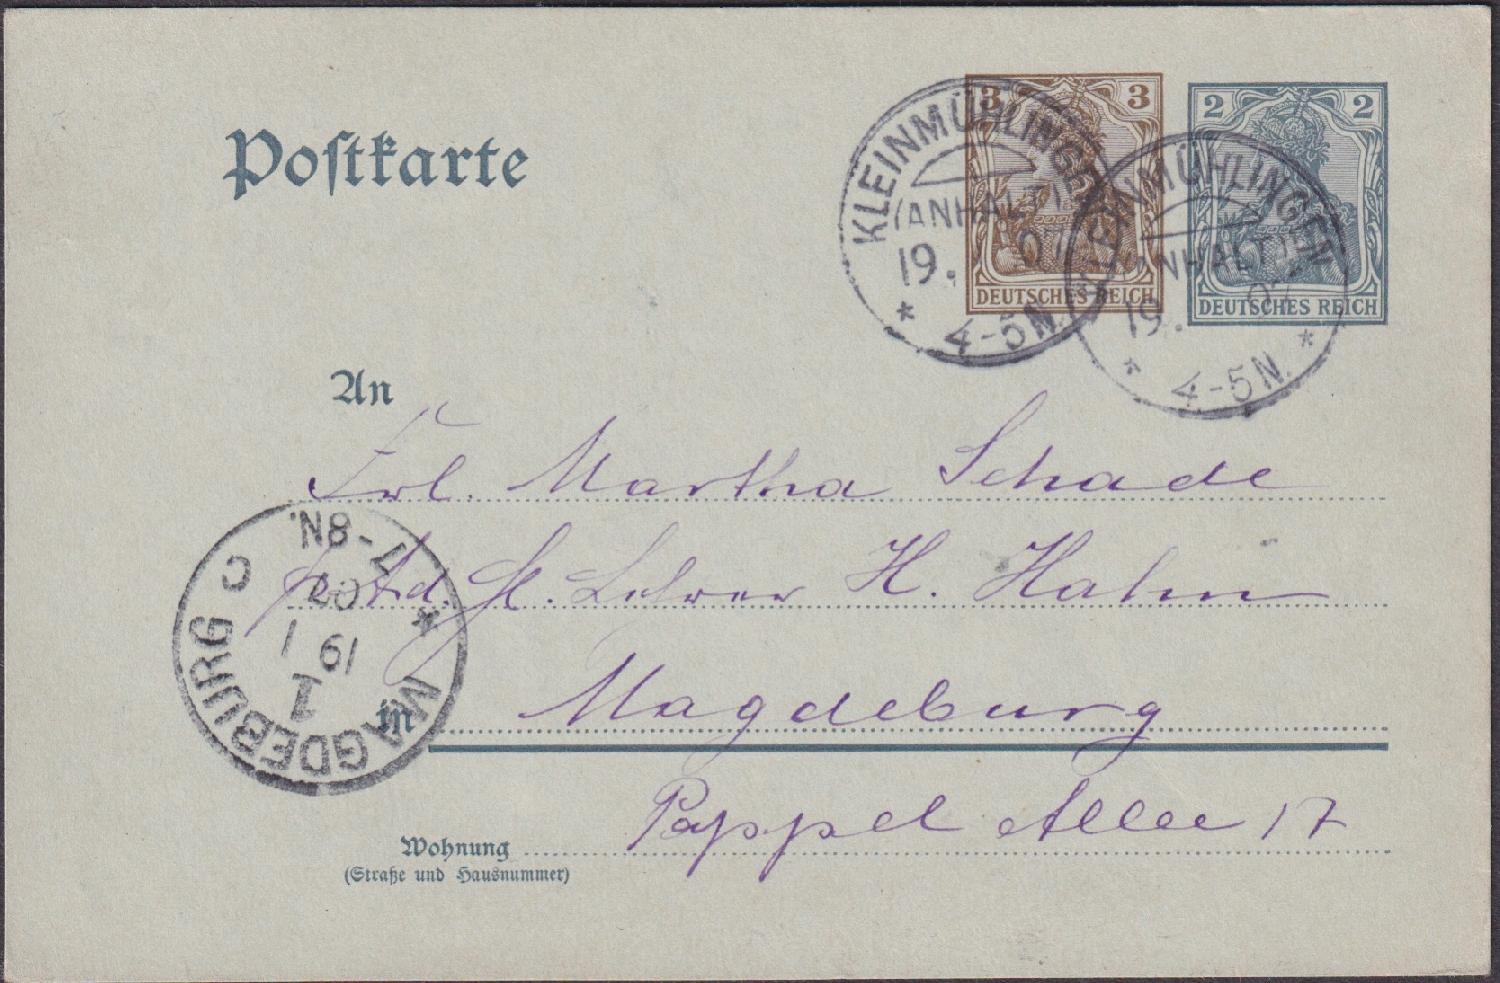 Postkarte
3 3
DEUTSCHES REICH
2 2
DEUTSCHES REICH
KLEINMÜHLINGEN
(ANHALT)
19. 07
* 4-5N.
KLEINMÜHLINGEN
(ANHALT)
19. 07
* 4-5N. *
An
Frl. Martha Schade
p. Ad. H. Lehrer H. Hahn
in Magdeburg
Pappel Allee 17
Wohnung
(Straße und Hausnummer)
* MAGDEBURG C
1
19 1
07
7-8N.